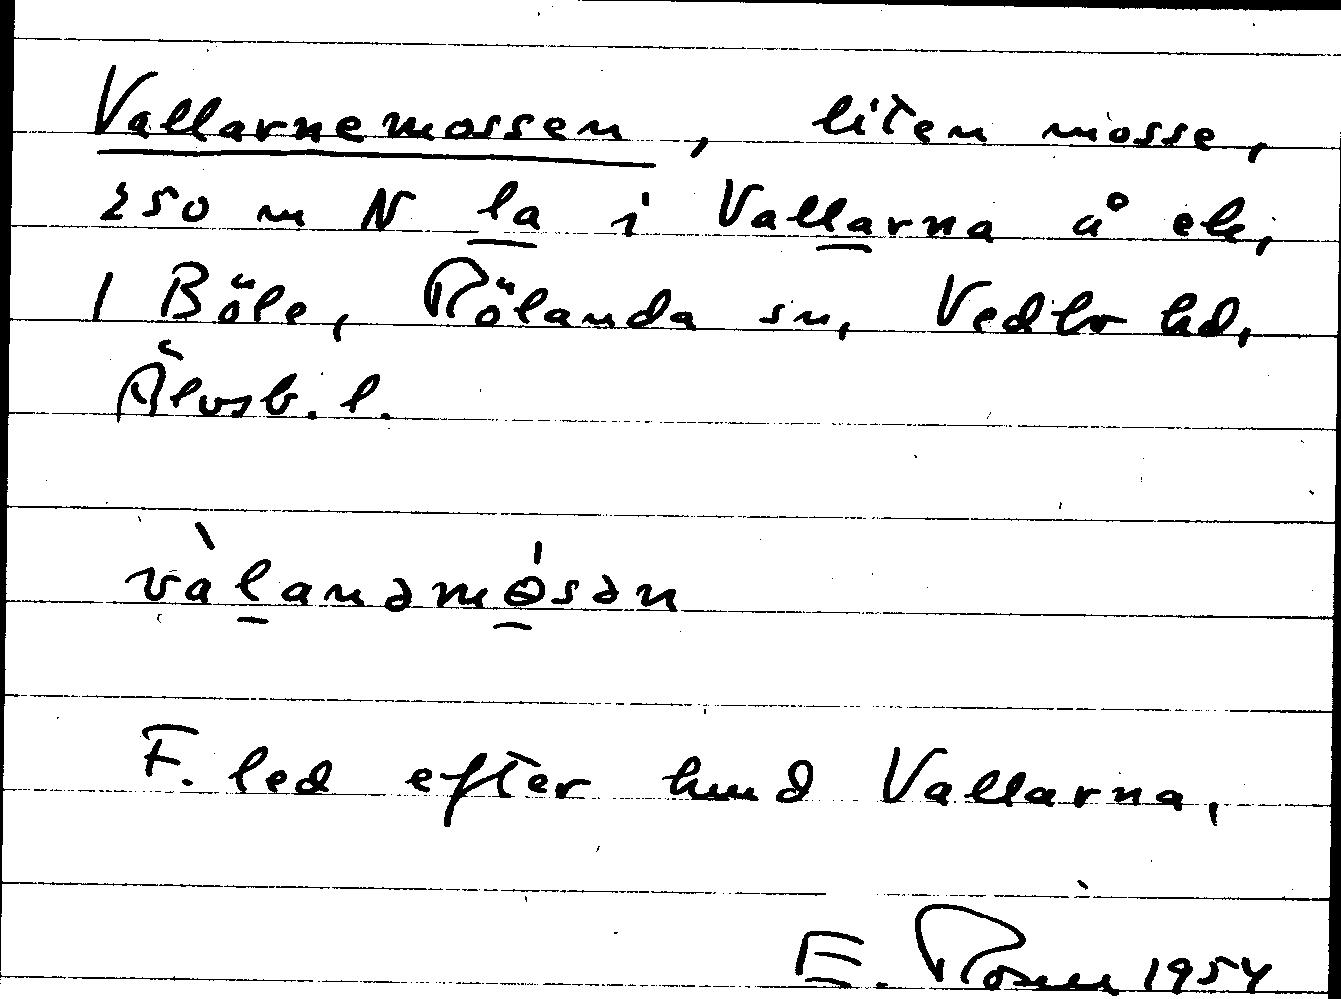 Vallarnemossen, liten mosse,
250 m N la i Vallarna å ek,
1 Böle, Rölanda sn, Vedbo hd,
Älvsb. l.
vàlanəmósən
F. led efter hmd Vallarna.
E. Rosell 1954